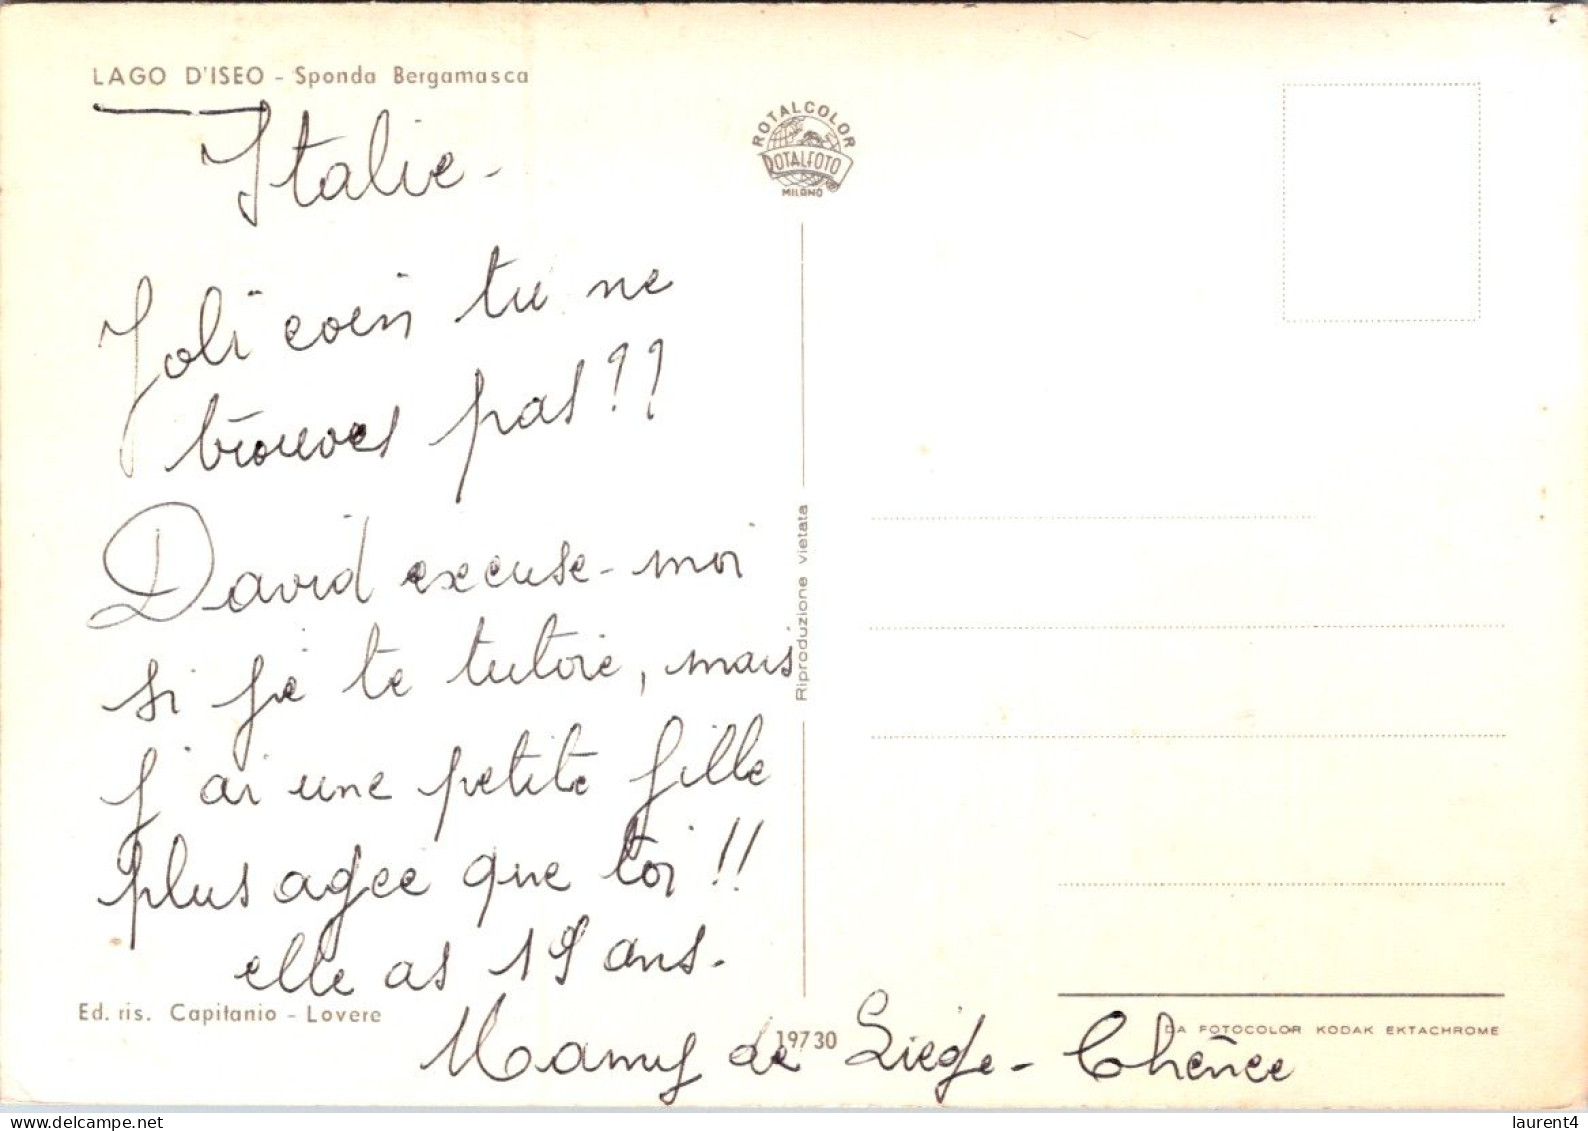 LAGO D'ISEO - Sponda Bergamasca
Italie -
Joli coin tu ne
trouves pas??
David excuse-moi
si je te tutoie, mais
j'ai une petite fille
plus agee que toi!!
elle as 19 ans.
Mamy de Liege - Chênee
Ed. ris. Capitanio - Lovere
ROTALCOLOR
ROTALFOTO
MILANO
Riproduzione vietata
19730
DA FOTOCOLOR KODAK EKTACHROME
laurent4